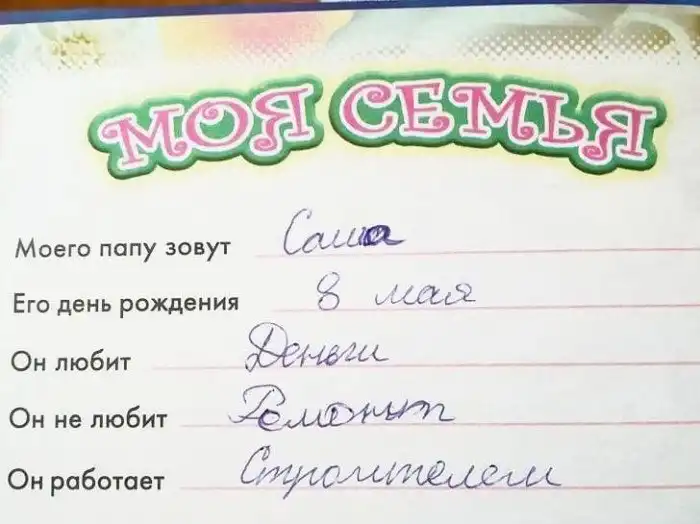 МОЯ СЕМЬЯ
Моего папу зовут Саша
Его день рождения 8 мая
Он любит Деньги
Он не любит Ремонт
Он работает Строителем